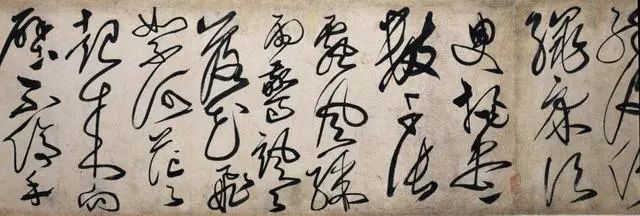 繩床須
臾掃盡
數千張
飄風驟
雨驚颯颯
落花飛
雪何茫茫
起來向
壁不停手